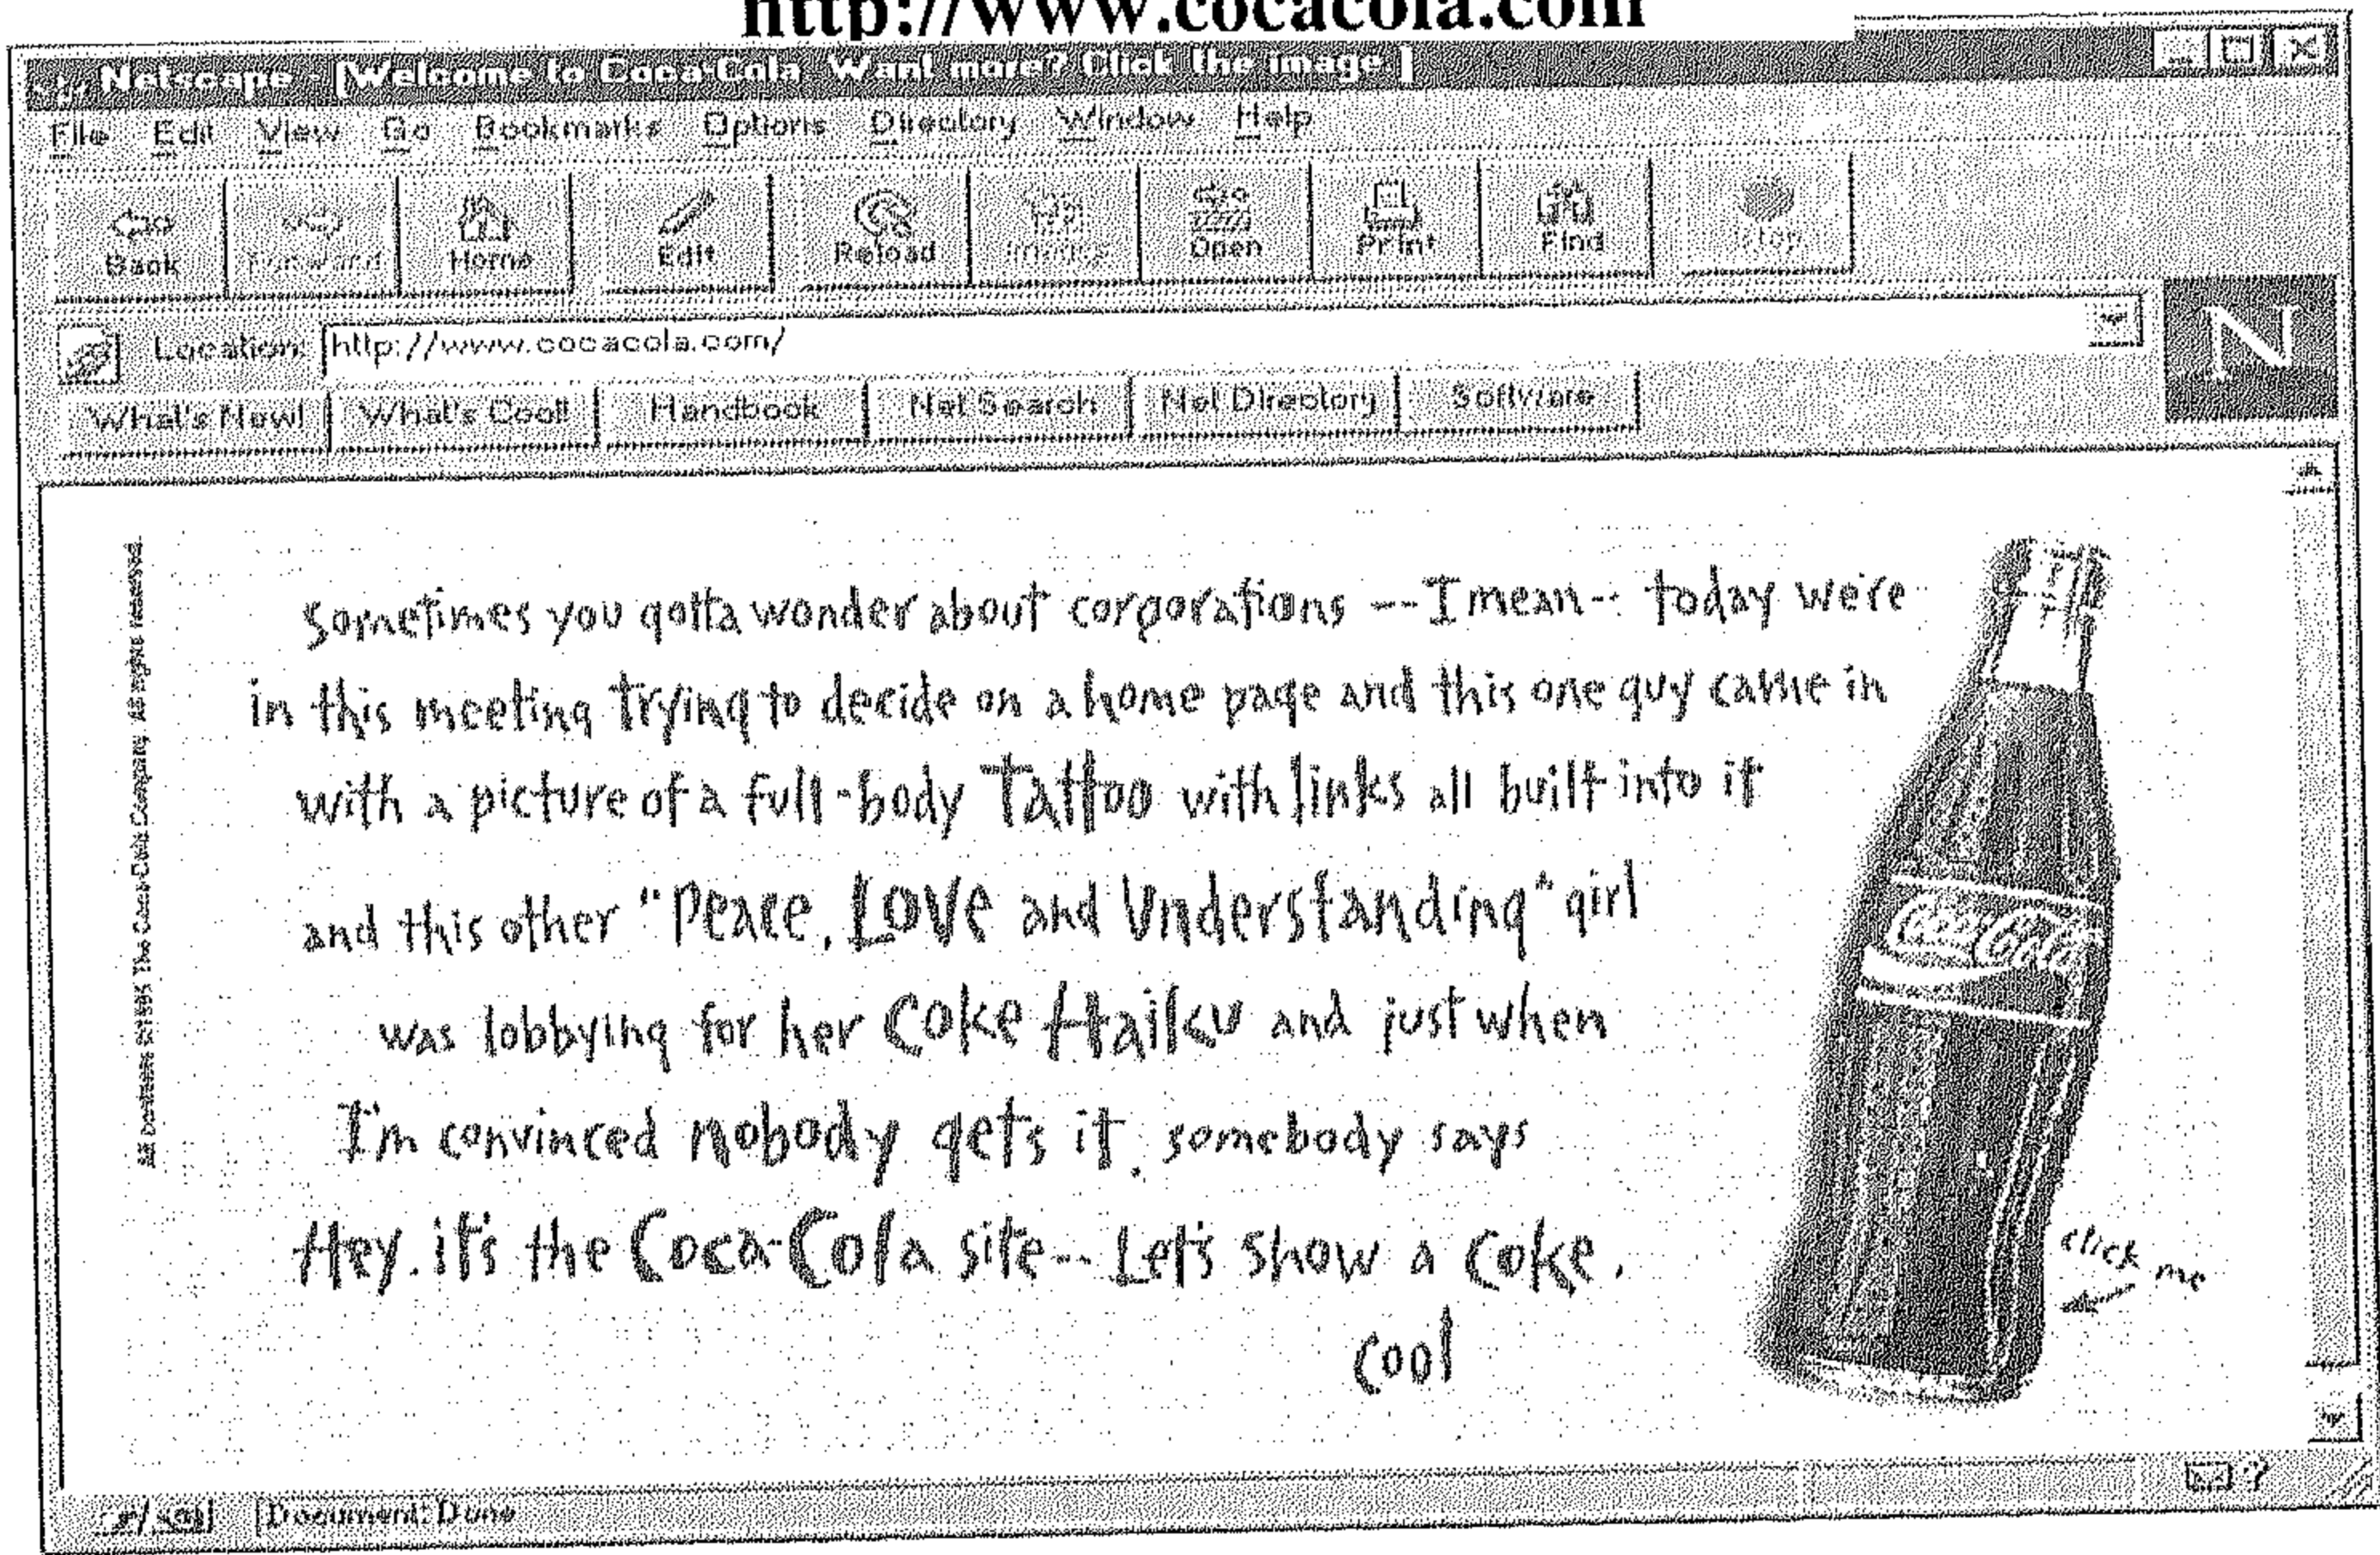 http://www.cocacola.com
Netscape - [Welcome to Coca-Cola Want more? Click the image.]
File Edit View Go Bookmarks Options Directory Window Help
Back Forward Home Edit Reload Images Open Print Find Stop
Location: http://www.cocacola.com/
N
What's New! What's Cool! Handbook Net Search Net Directory Software
All contents ©1995 The Coca-Cola Company. All rights reserved.
Sometimes you gotta wonder about corporations -- I mean -- today we're
in this meeting trying to decide on a home page and this one guy came in
with a picture of a full-body Tattoo with links all built into it
and this other "Peace, Love and Understanding" girl
was lobbying for her Coke Haiku and just when
I'm convinced nobody gets it, somebody says
Hey. it's the Coca-Cola site-- Let's show a Coke.
Cool
Coca-Cola
click me
Document: Done
?